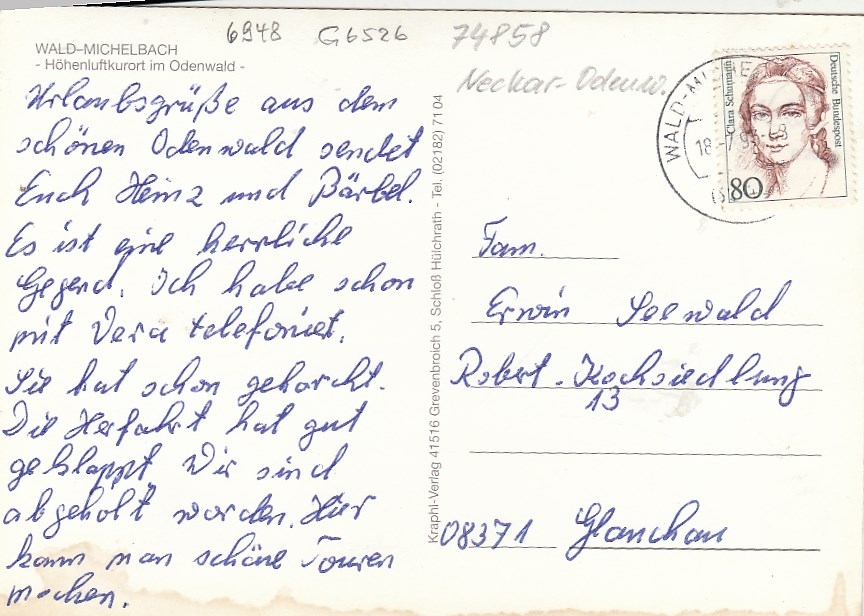 6948 G6526 74858
Neckar-Odenw.
WALD-MICHELBACH
- Höhenluftkurort im Odenwald -
Urlaubsgrüße aus dem
schönen Odenwald sendet
Euch Heinz und Bärbel.
Es ist eine herrliche
Gegend. Ich habe schon
mit Vera telefoniert.
Sie hat schon gehorcht.
Die Herfahrt hat gut
geklappt. Wir sind
abgeholt worden. Hier
kann man schöne Touren
machen.
Kraphl-Verlag 41516 Grevenbroich 5, Schloß Hülchrath - Tel. (02182) 71 04
Clara Schumann
Deutsche Bundespost
80
WALD-MI
18.-7.93
Fam.
Erwin Seewald
Robert-Kochsiedlung
13
08371 Glauchau